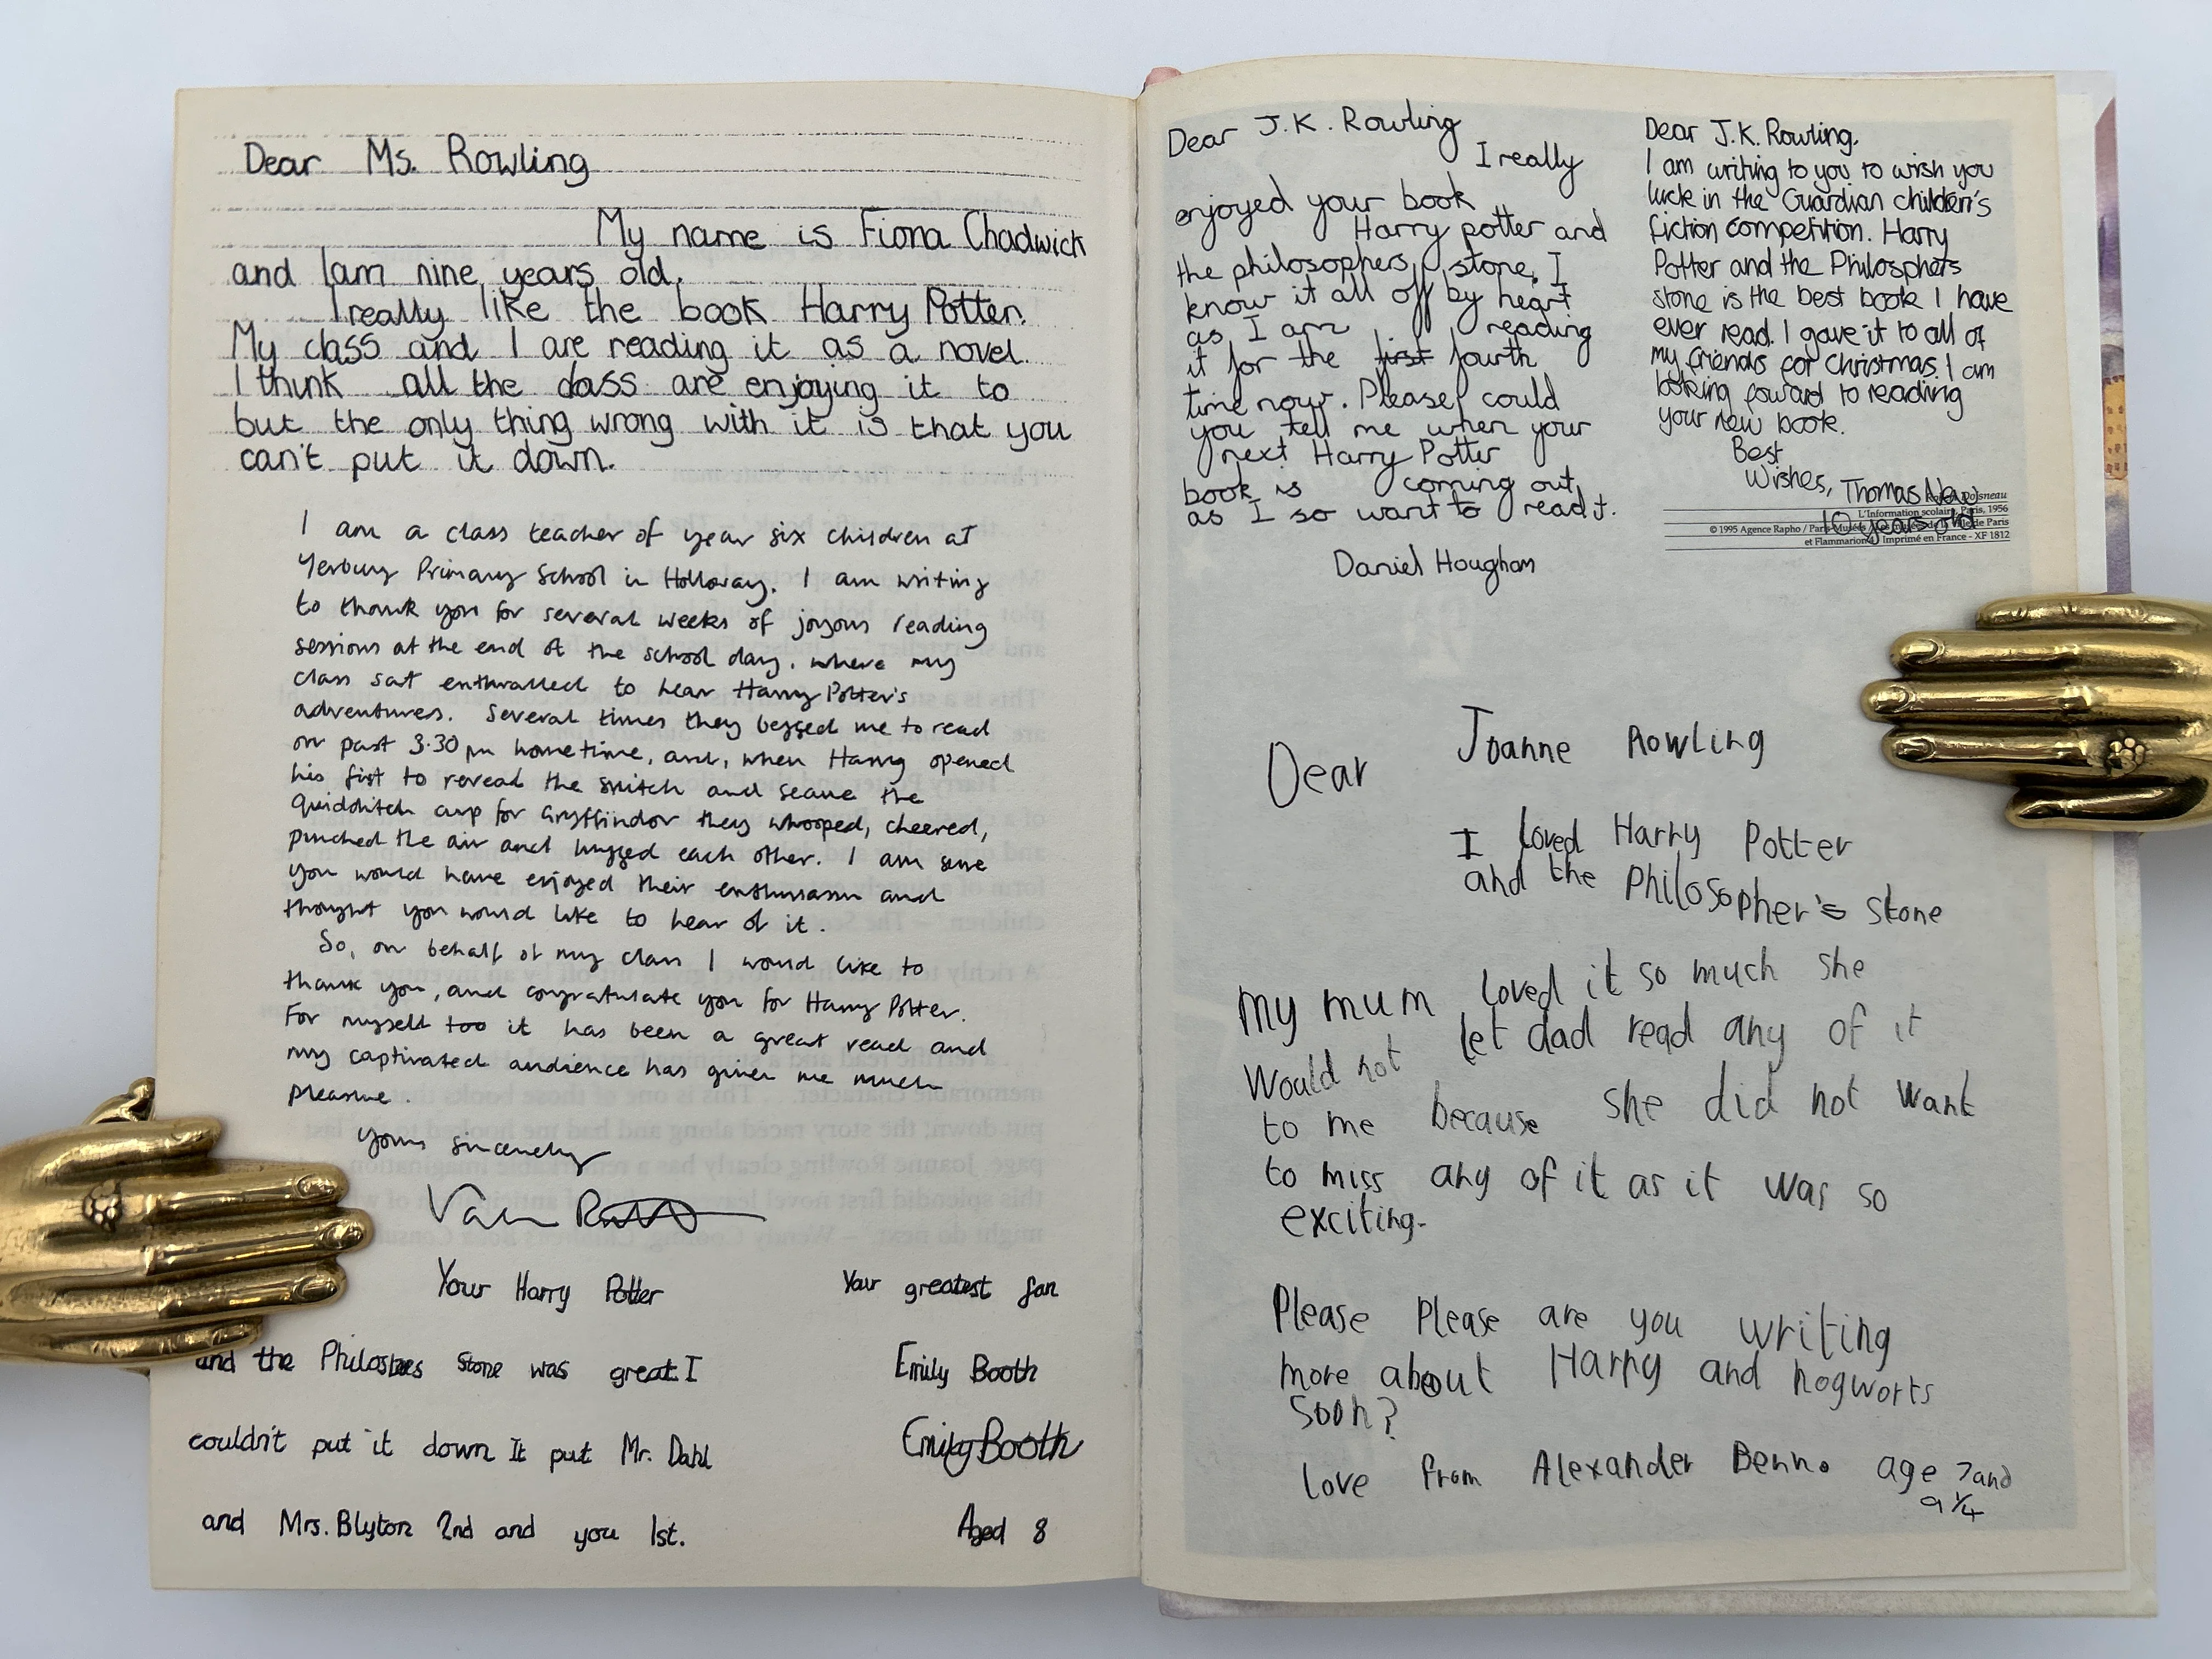 Dear Ms. Rowling
My name is Fiona Chadwick
and I am nine years old.
I really like the book Harry Potter.
My class and I are reading it as a novel.
I think all the class are enjoying it to
but the only thing wrong with it is that you
can't put it down.
I am a class teacher of year six children at
Yerbury Primary School in Holloway. I am writing
to thank you for several weeks of joyous reading
sessions at the end of the school day, where my
class sat enthralled to hear Harry Potter's
adventures. Several times they begged me to read
on past 3.30 pm hometime, and, when Harry opened
his fist to reveal the snitch and secure the
Quidditch cup for Gryffindor they whooped, cheered,
punched the air and hugged each other. I am sure
you would have enjoyed their enthusiasm and
thought you would like to hear of it.
So, on behalf of my class I would like to
thank you, and congratulate you for Harry Potter.
For myself too it has been a great read and
my captivated audience has given me much
pleasure.
Yours sincerely
Your Harry Potter
and the Philosbes Stone was great I
couldn't put it down It put Mr. Dahl
and Mrs. Blyton 2nd and you 1st.
Your greatest fan
Emily Booth
Emily Booth
Aged 8
Dear J.K. Rowling
I really
enjoyed your book
Harry potter and
the philosophers stone, I
know it all off by heart
as I am reading
it for the first fourth
time now. Please could
you tell me when your
next Harry Potter
book is coming out,
as I so want to read it.
Daniel Hougham
Dear J.K. Rowling.
I am writing to you to wish you
luck in the Guardian children's
fiction competition. Harry
Potter and the Philosphers
stone is the best book I have
ever read. I gave it to all of
my friends for Christmas. I am
looking foward to reading
your new book.
Best
Wishes, Thomas New
10 years old
Doisneau
L'Information scolaire, Paris, 1956
© 1995 Agence Rapho / Paris Musées de Paris
et Flammarion 4 Imprimé en France - XF 1812
Dear Joanne Rowling
I loved Harry Potter
and the Philosopher's Stone
My mum loved it so much she
would not let dad read any of it
to me because she did not want
to miss any of it as it was so
exciting.
Please Please are you writing
more about Harry and hogworts
soon?
love from Alexander Benn. age 7 and
a 1/4